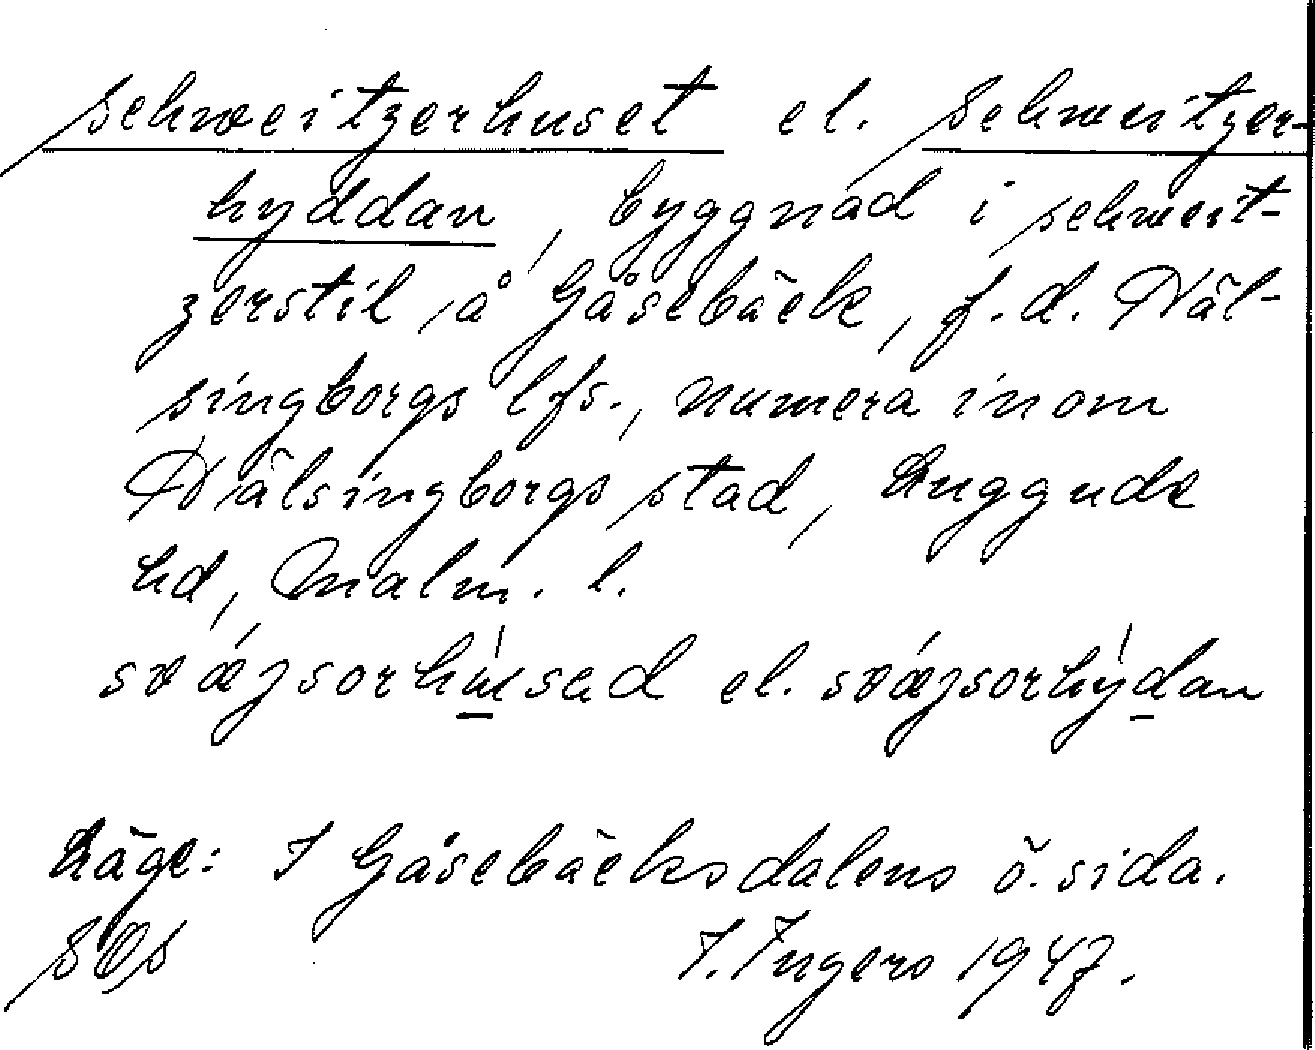 Schweitzerhuset el. Schweitzer-
hyddan, byggnad i schweit-
zerstil å Gåsebäck, f.d. Häl-
singborgs lfs., numera inom
Hälsingborgs stad, Luggude
hd, Malm. l.
sväjsorhusad el. sväjsorhýdan
Läge: I Gåsebäcksdalens ö. sida.
I. Ingers 1947.